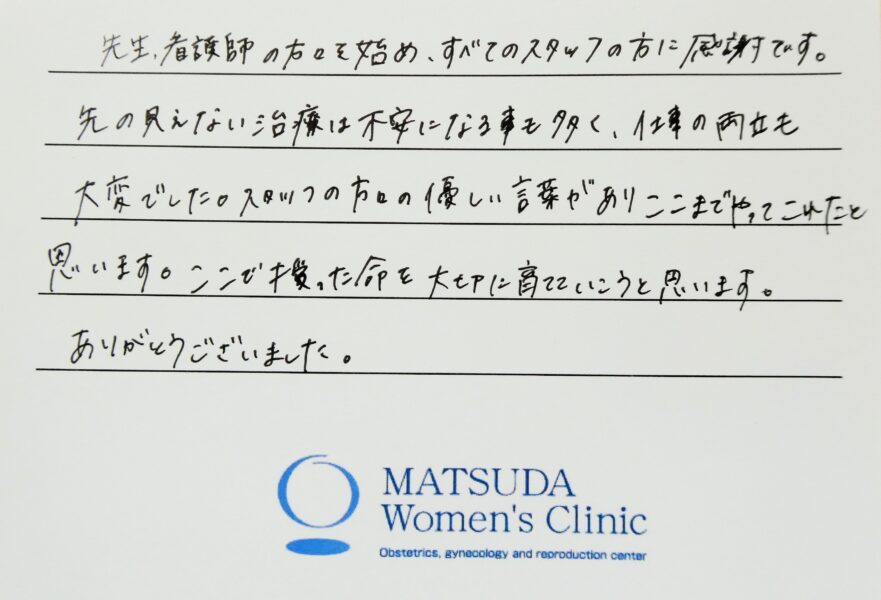 先生、看護師の方々を始め、すべてのスタッフの方に感謝です。
先の見えない治療は不安になる事も多く、仕事の両立も
大変でした。スタッフの方々の優しい言葉がありここまでやってこれたと
思います。ここで授った命を大切に育てていこうと思います。
ありがとうございました。
MATSUDA
Women's Clinic
Obstetrics, gynecology and reproduction center